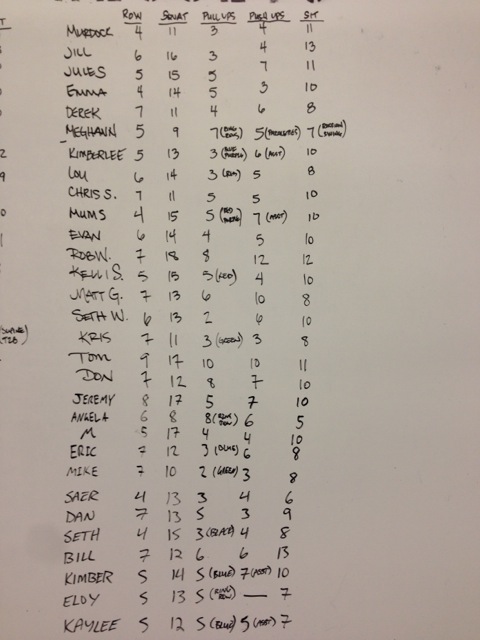 ROW SQUAT PULL UPS PUSH UPS SIT
MURDOCK 4 11 3 4 11
JILL 6 16 3 4 13
JULES 5 15 5 7 11
EMMA 4 14 5 3 10
DEREK 7 11 4 6 8
MEGHANN 5 9 7 5 7
KIMBERLEE 5 13 3 6 (ASST) 10
LOU 6 14 3 5 8
CHRIS S. 7 11 5 5 10
MUMS 4 15 5 7 (ASST) 10
EVAN 6 14 4 5 10
ROB W. 7 18 8 12 12
KELLI S. 5 15 5 (RED) 4 10
MATT G. 7 13 6 10 8
SETH W. 6 13 2 6 10
KRIS 7 11 3 (GREEN) 3 8
TOM 9 17 10 10 11
DON 7 12 8 7 10
JEREMY 8 17 5 7 10
ANGELA 6 8 8 (RING ROW) 6 5
M 5 17 4 4 10
ERIC 7 12 3 6 8
MIKE 7 10 2 (GREEN) 3 8
SAER 4 13 3 4 6
DAN 7 13 5 3 9
SETH 4 15 3 (BLACK) 4 8
BILL 7 12 6 6 13
KIMBER 5 14 5 (BLUE) 7 (ASST) 10
ELOY 5 13 5 (RING ROW) — 7
KAYLEE 5 12 5 (BLUE) 5 (ASST) 7